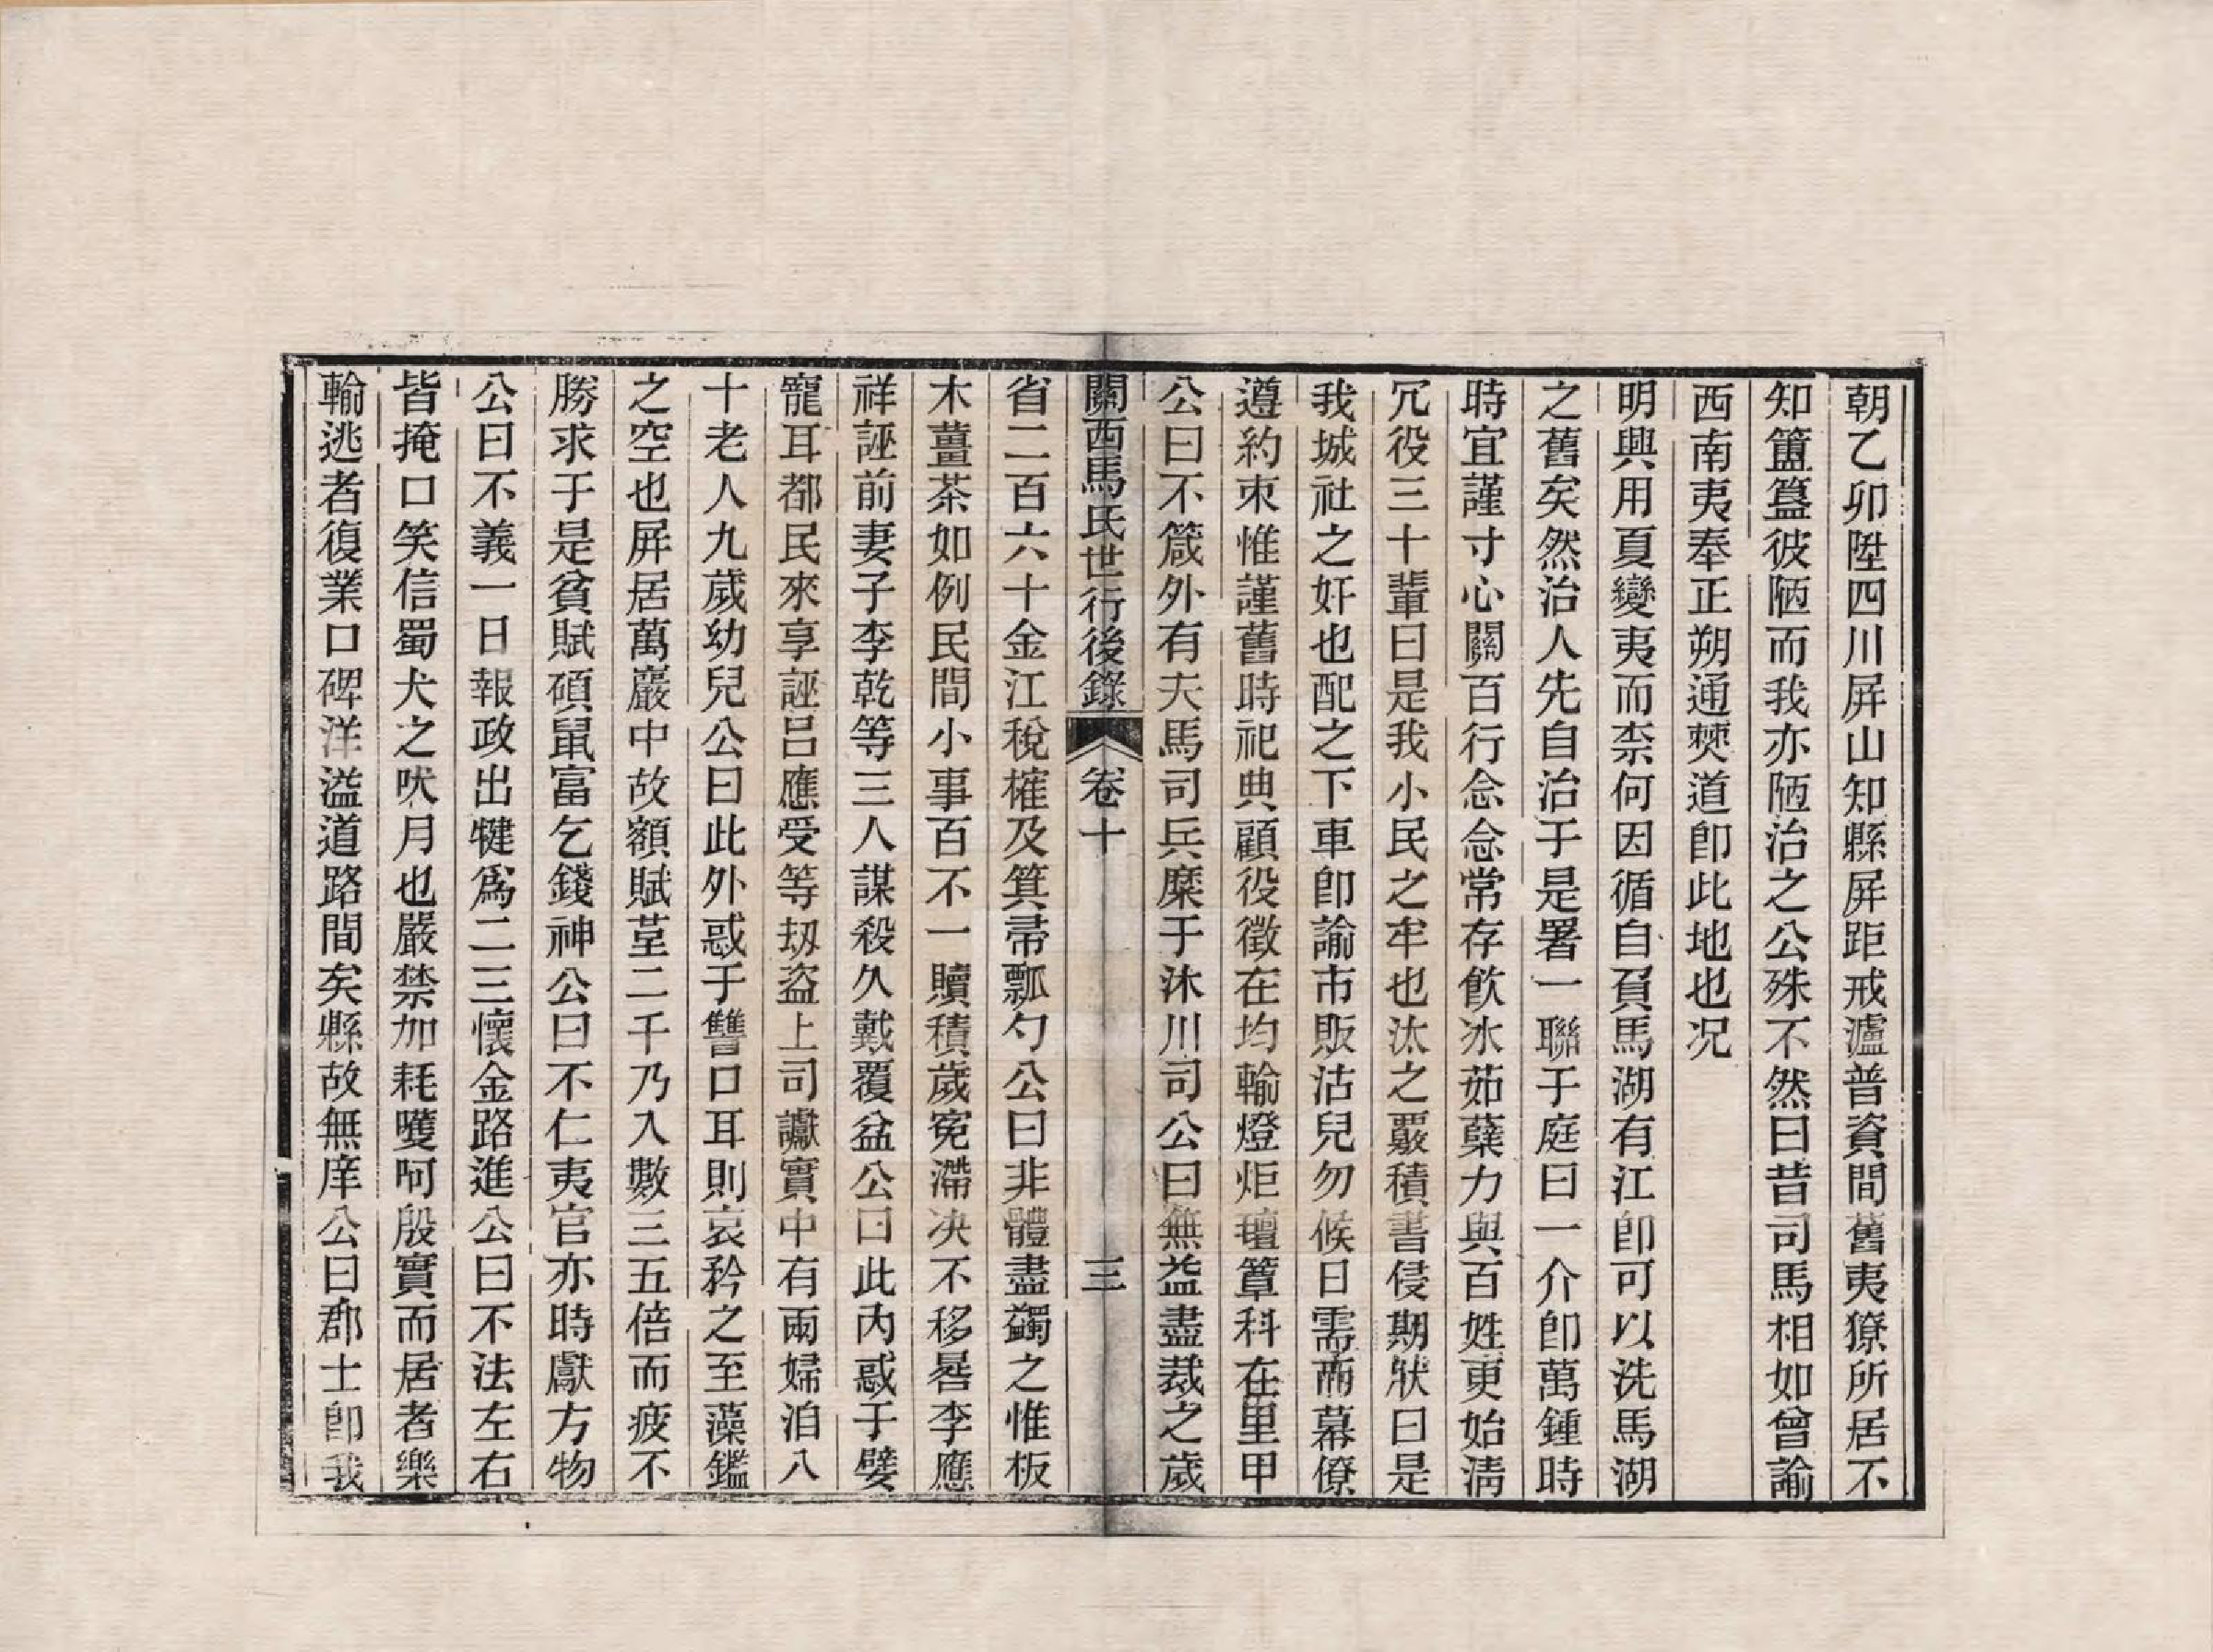 朝乙卯陞四川屏山知縣屏距戒瀘普資間舊夷獠所居不
知簠簋彼陋而我亦陋治之公殊不然曰昔司馬相如曾諭
西南夷奉正朔通僰道卽此地也况
明興用夏變夷而柰何因循自負馬湖有江卽可以洗馬湖
之舊矣然治人先自治于是署一聯于庭曰一介卽萬鍾時
時宜謹寸心關百行念念常存飮冰茹蘗力與百姓更始淸
冗役三十輩曰是我小民之牢也汰之覈積書侵期狀曰是
我城社之奸也配之下車卽諭市販沽兒勿候日需兩幕僚
遵約束惟謹舊時祀典顧役徵在均輸燈炬壇簟科在里甲
公曰不箴外有夫馬司兵糜于沐川司公曰無益盡裁之歲
關西馬氏世行後錄 卷十 三
省二百六十金江稅榷及箕帚瓢勺公曰非體盡蠲之惟板
木薑茶如例民間小事百不一贖積歲寃滯决不移晷李應
祥誣前妻子李乾等三人謀殺久戴覆盆公曰此內惑于嬖
寵耳都民來享誣呂應受等刼盜上司讞實中有兩婦洎八
十老人九歲幼兒公曰此外惑于讐口耳則哀矜之至藻鑑
之空也屏居萬巖中故額賦莖二千乃入數三五倍而疲不
勝求于是貧賦碩鼠富乞錢神公曰不仁夷官亦時獻方物
公曰不義一日報政出犍爲二三懷金路進公曰不法左右
皆掩口笑信蜀犬之吠月也嚴禁加耗嚄呵殷實而居者樂
輸逃者復業口碑洋溢道路間矣縣故無庠公曰郡士卽我